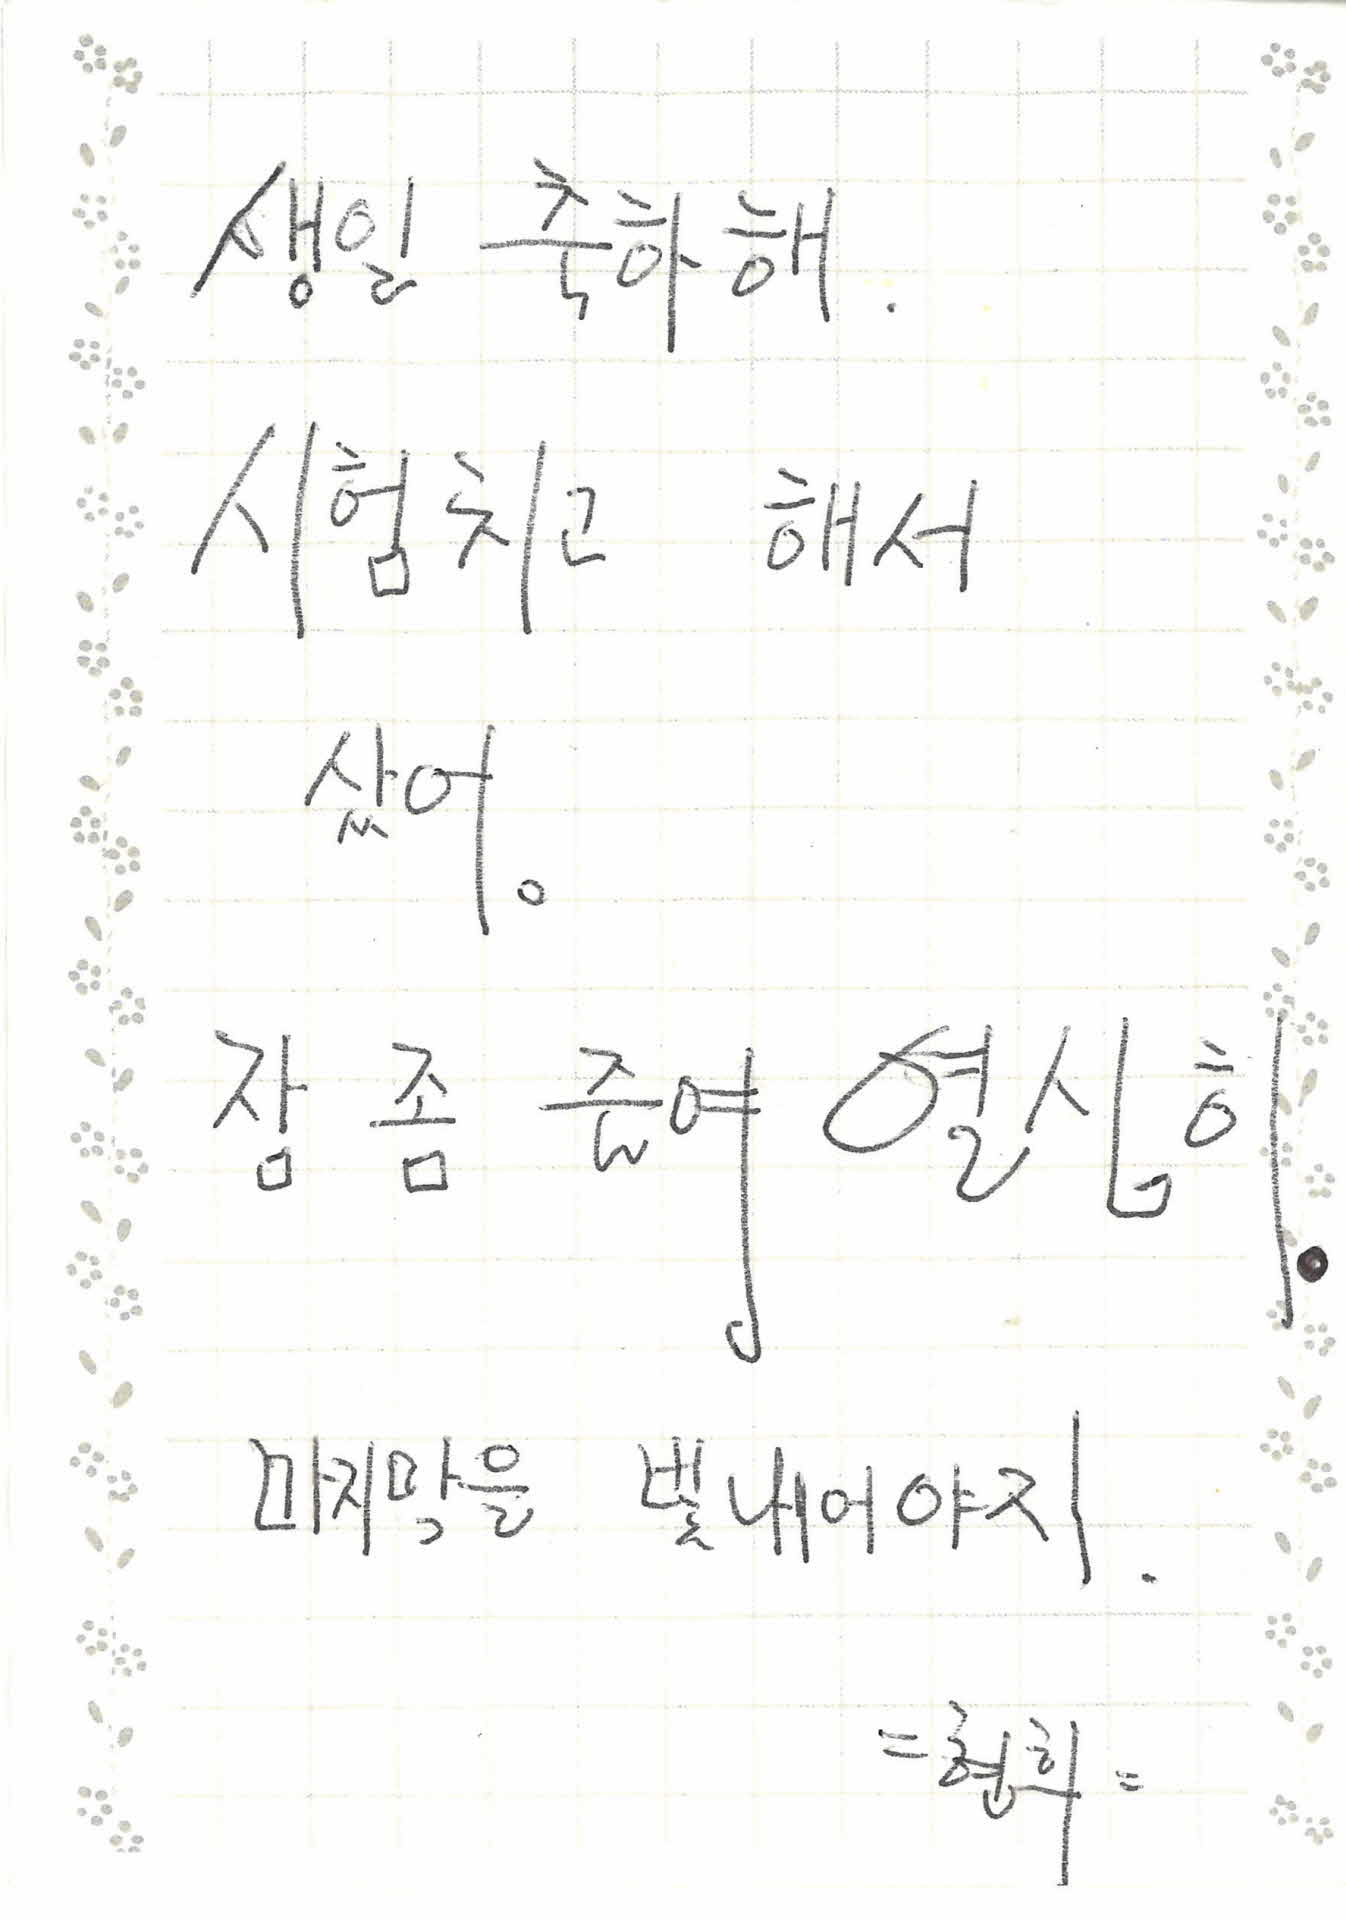 생일 축하해.
시험치고 해서
샀어。
잠 좀 줄여 열심히.
마지막을 빛내어야지.
=형희=